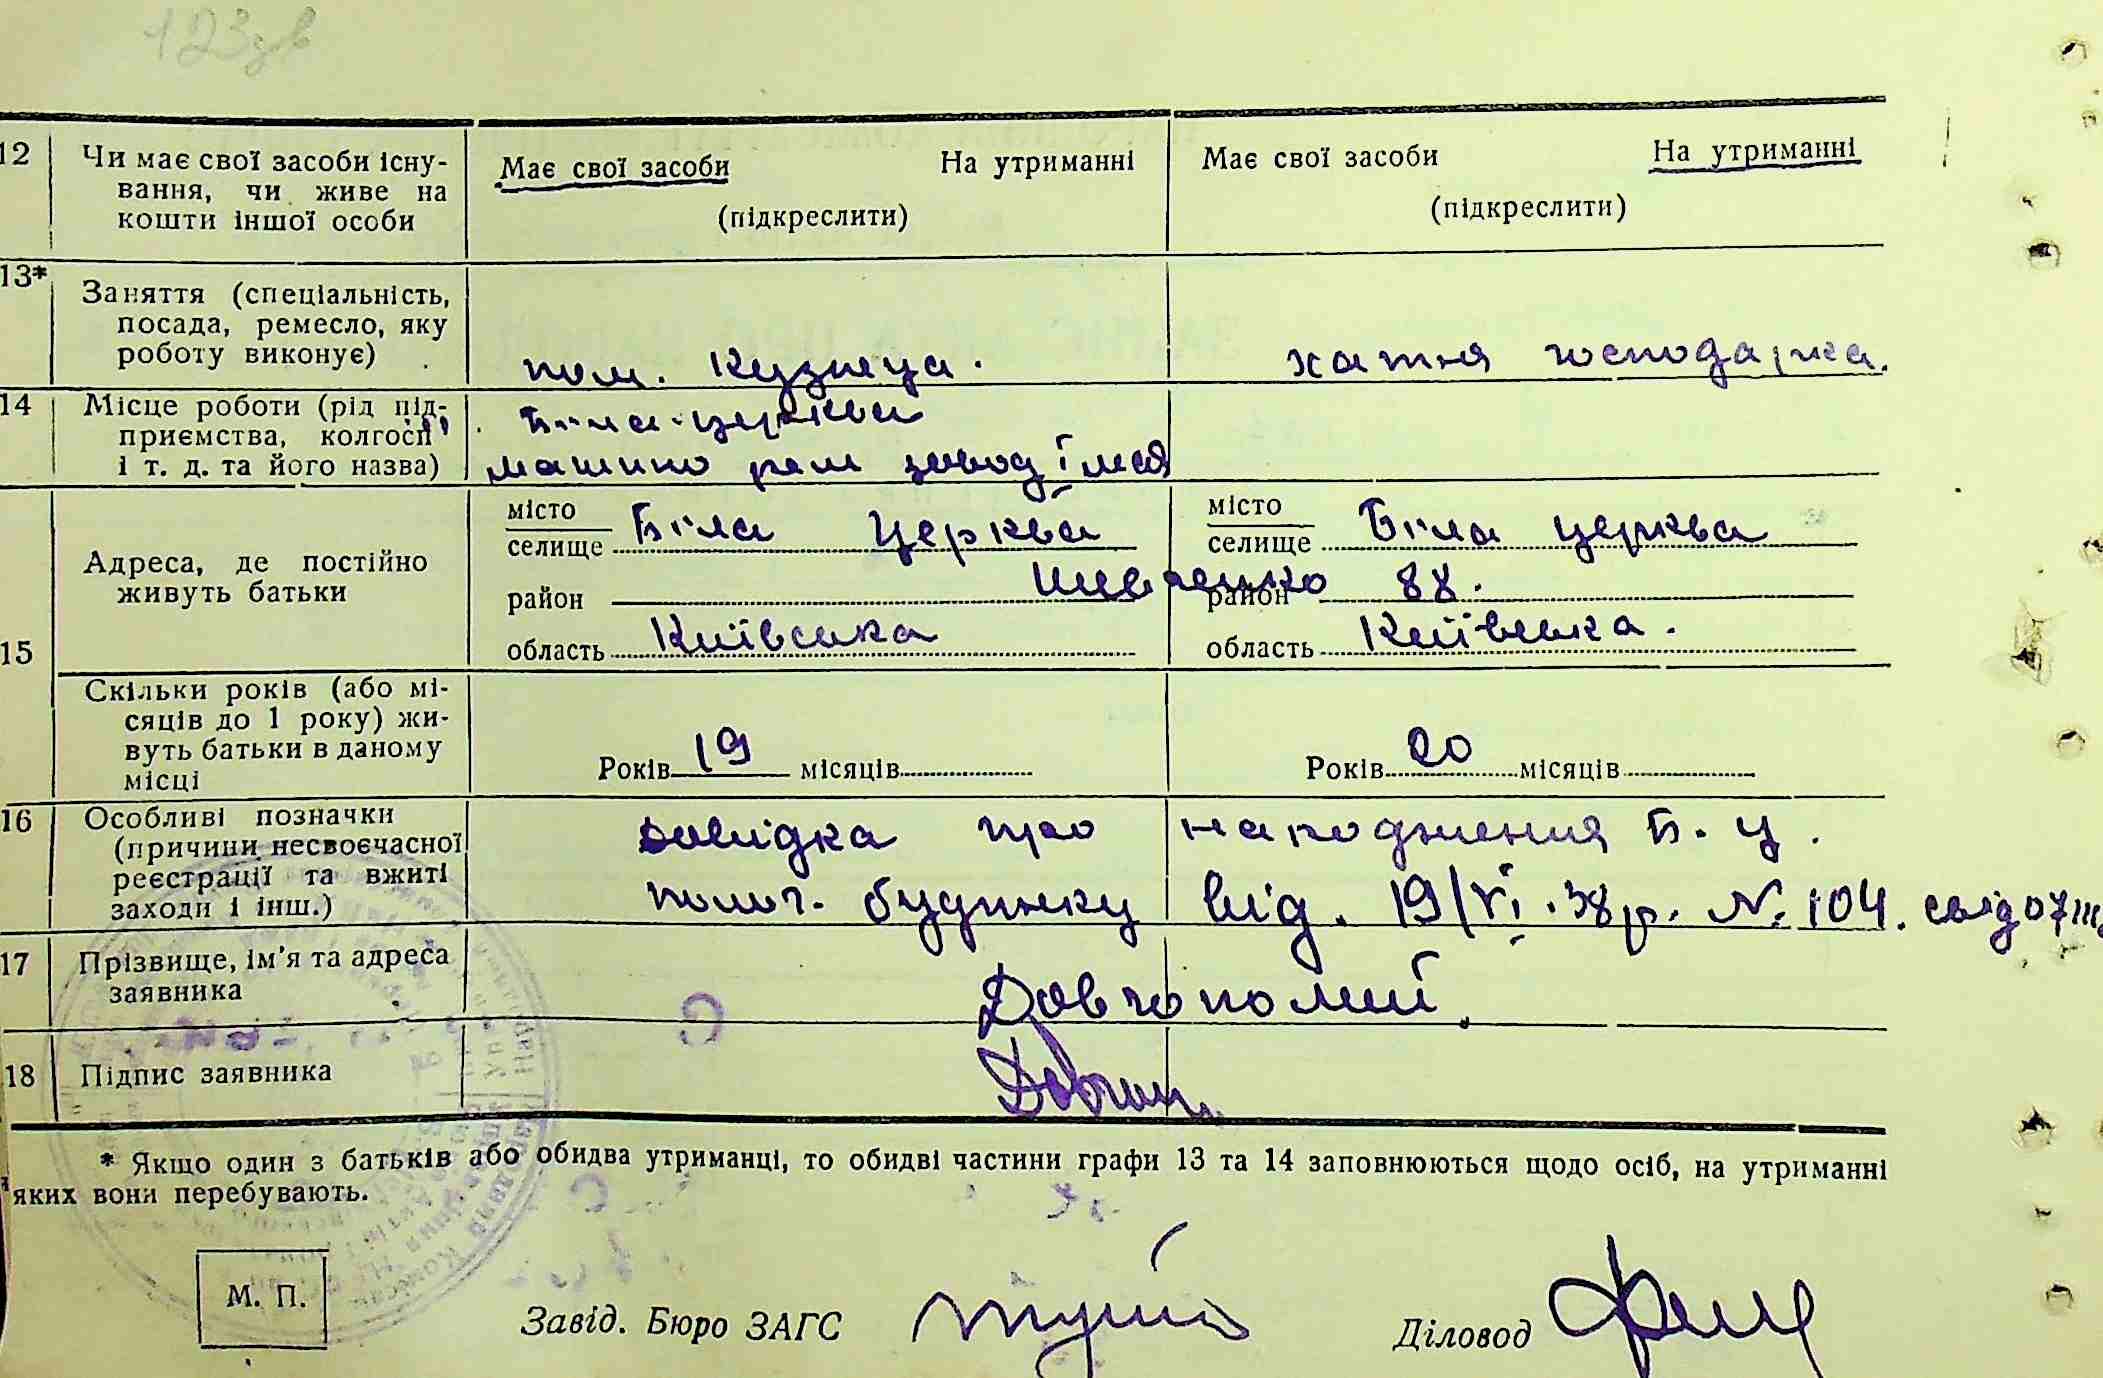 123зв
12 Чи має свої засоби існу- Має свої засоби На утриманні Має свої засоби На утриманні
вання, чи живе на (підкреслити) (підкреслити)
кошти іншої особи
13* Заняття (спеціальність,
посада, ремесло, яку
роботу виконує) пом. Кузнеца. хатня господарка.
14 Місце роботи (рід під- Біла-церква
приємства, колгосп
і т. д. та його назва) машино рем завод
15 Адреса, де постійно місто Біла Церква місто Біла церква
живуть батьки селище селище
район Шевченко район 88.
область Київська область Київська.
Скільки років (або мі-
сяців до 1 року) жи-
вуть батьки в даному Років 19 місяців Років 20 місяців
місці
16 Особливі позначки довідка про народження Б. Ц.
(причини несвоєчасної
реєстрації та вжиті полог. будинку від. 19/VI.38р. №. 104.
заходи і інш.)
17 Прізвище, ім'я та адреса Довгополий
заявника
18 Підпис заявника
* Якщо один з батьків або обидва утриманці, то обидві частини графи 13 та 14 заповнюються щодо осіб, на утриманні
яких вони перебувають.
М. П. Завід. Бюро ЗАГС Діловод